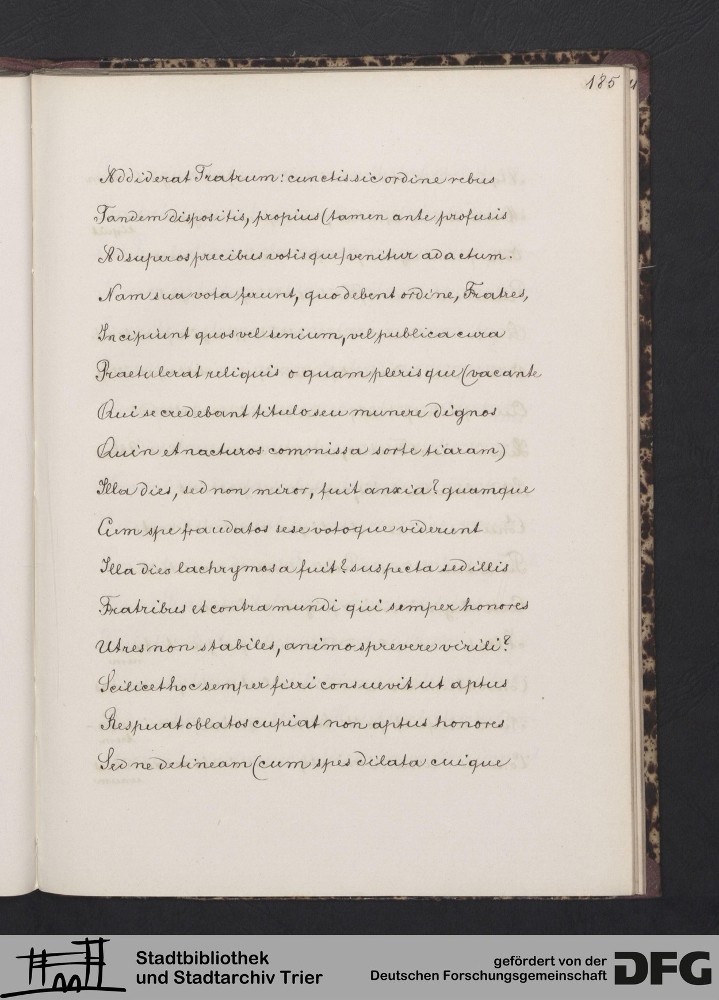 185
Addiderat Fratrum: cunctis sic ordine rebus
Tandem dispositis, propius (tamen ante profusis
Ad superos precibus votisque) venitur ad actum.
Nam sua vota ferunt, quo debent ordine, Fratres,
Incipiunt quos vel senium, vel publica cura
Praetulerat reliquis o quam plerisque (vacante
Qui se credebant titulo seu munere dignos
Quin et nacturos commissa sorte tiaram)
Illa dies, sed non miror, fuit anxia? quamque
Cum spe fraudatos sese votoque viderunt
Illa dies lachrymosa fuit? suspecta sed illis
Fratribus et contra mundi qui semper honores
Ut res non stabiles, animo sprevere virili?
Scilicet hoc semper fieri consuevit ut aptus
Respuat oblatos cupiat non aptus honores
Sed ne detineam (cum spes dilata cuique
Stadtbibliothek
und Stadtarchiv Trier
gefördert von der
Deutschen Forschungsgemeinschaft
DFG